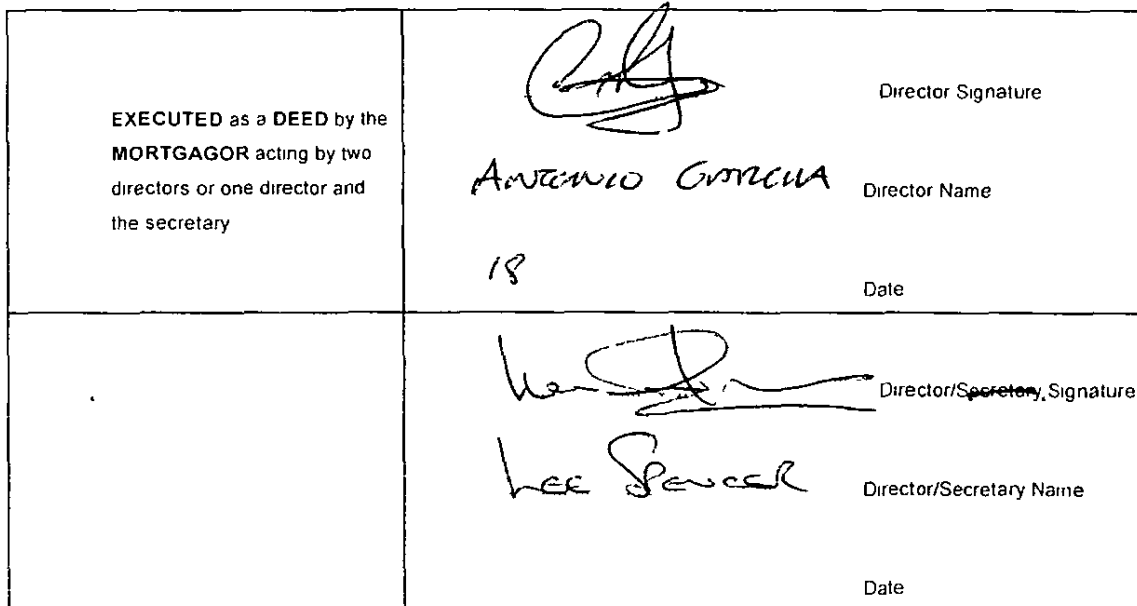 EXECUTED as a DEED by the
MORTGAGOR acting by two
directors or one director and
the secretary
Director Signature
ANTONIO GARCHA Director Name
18
Date
Director/Secretary Signature
LEE SPENCER Director/Secretary Name
Date